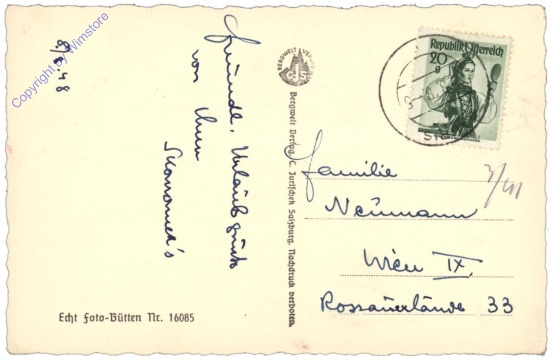 8/6.48
Freundl. Urlaubsgrüße
von Ihren
Copyright by Wimstore
Echt Foto-Bütten Nr. 16085
BERGWELT VERLAG
CJS
Bergwelt Verlag, C. Jurischek Salzburg. Nachdruck verboten.
Republik Österreich
20
g
Familie
Neumann
Wien IX.
Rossauerlände 33